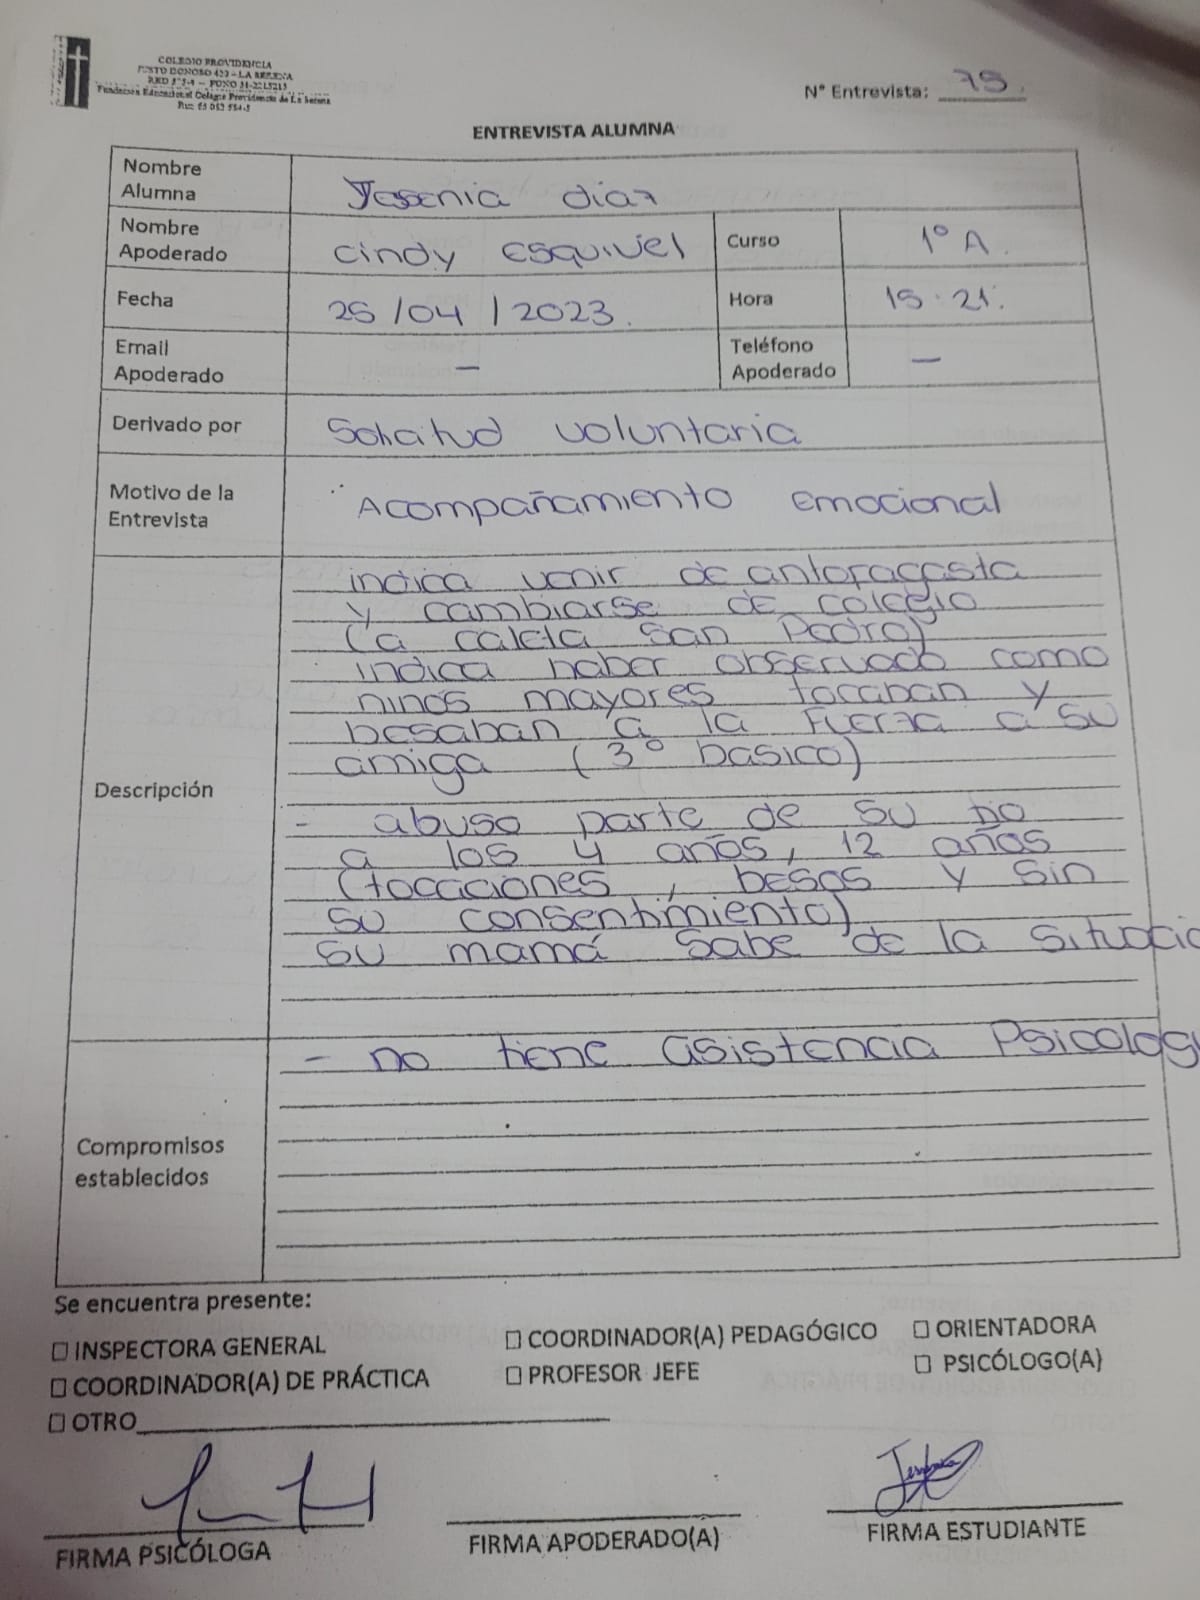 COLEGIO PROVIDENCIA
JUSTO DONOSO 420 - LA SERENA
Fundación Educacional Colegio Providencia de La Serena
N° Entrevista: 75.
ENTREVISTA ALUMNA
Nombre Alumna Yessenia diaz
Nombre Apoderado Cindy Esquivel Curso 1° A.
Fecha 25/04/2023. Hora 15:21.
Email Apoderado — Teléfono Apoderado —
Derivado por Solicitud voluntaria
Motivo de la Entrevista Acompañamiento Emocional
Descripción
indica venir de antofagasta
y cambiarse de colegio
(a caleta San Pedro)
indica haber observado como
niños mayores tocaban y
besaban a la fuerza a su
amiga (3° basico)
- abuso parte de su tio
a los 4 años, 12 años
(tocaciones, besos y sin
su consentimiento)
su mamá sabe de la situació
Compromisos establecidos
- no tiene asistencia Psicolog
Se encuentra presente:
☐ INSPECTORA GENERAL ☐ COORDINADOR(A) PEDAGÓGICO ☐ ORIENTADORA
☐ COORDINADOR(A) DE PRÁCTICA ☐ PROFESOR JEFE ☐ PSICÓLOGO(A)
☐ OTRO
FIRMA PSICÓLOGA FIRMA APODERADO(A) FIRMA ESTUDIANTE